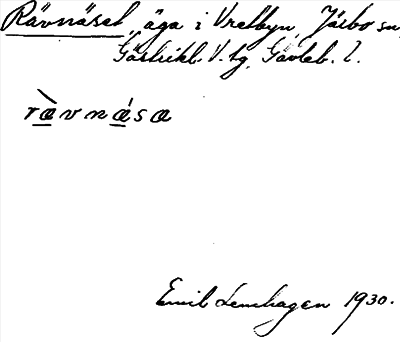 Rävnäset, äga i Vretbyn, Järbo sn,
Gästrikl. V. tg, Gävleb. l.
rævnæsa
Emil Lenehagen 1930.